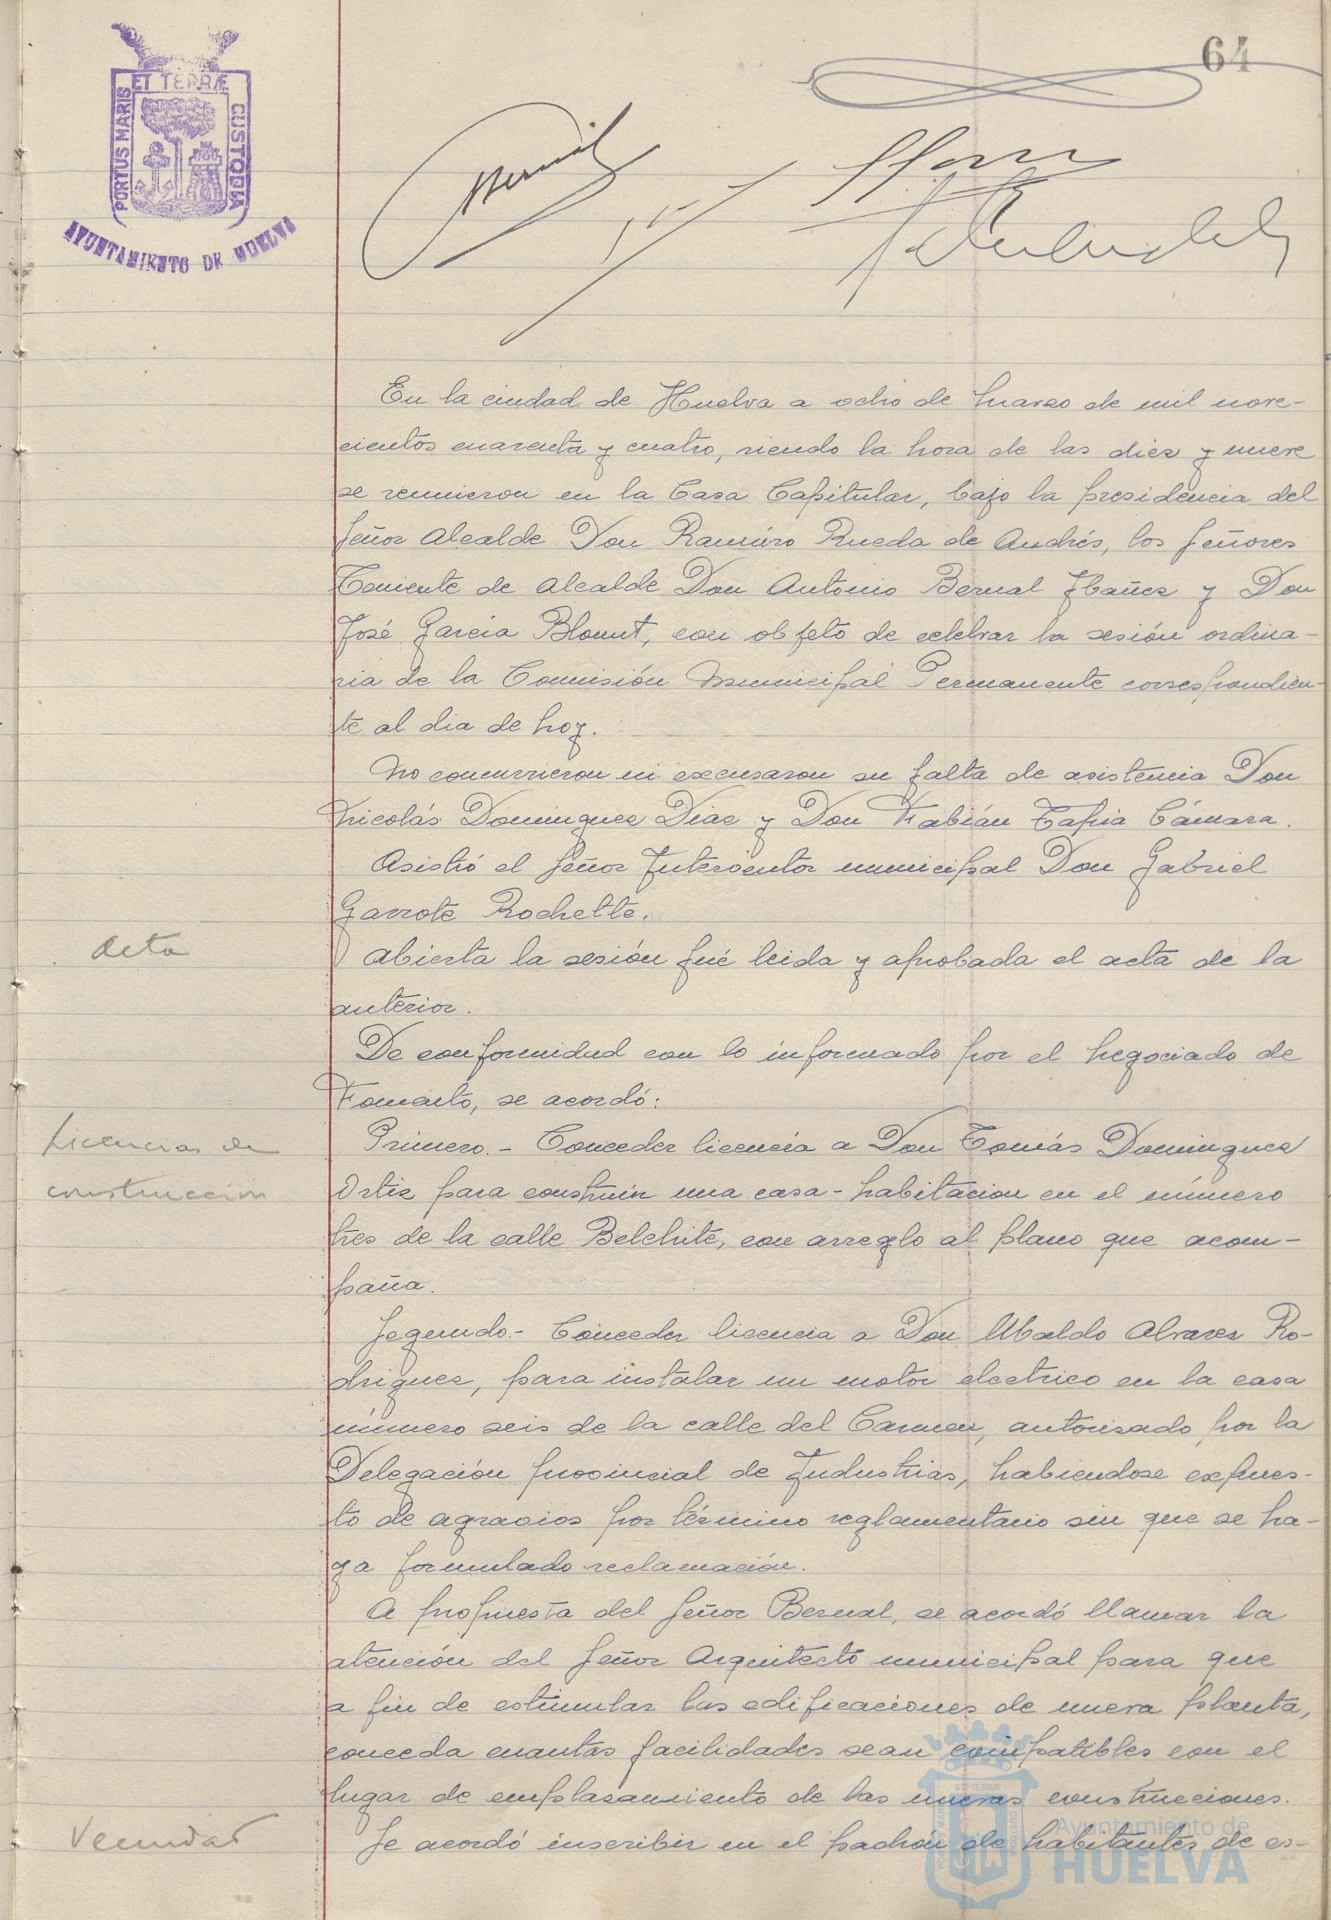 64
PORTUS MARIS ET TERRÆ CUSTODIA
AYUNTAMIENTO DE HUELVA
Bernal
En la ciudad de Huelva a ocho de Marzo de mil nove-
cientos cuarenta y cuatro, siendo la hora de las diez y nueve
se reunieron en la Casa Capitular, bajo la presidencia del
Señor Alcalde Don Ramiro Rueda de Andrés, los Señores
Teniente de Alcalde Don Antonio Bernal Ibañez y Don
José García Blount, con objeto de celebrar la sesión ordina-
ria de la Comisión Municipal Permanente correspondien-
te al dia de hoy.
No concurrieron ni excusaron su falta de asistencia Don
Nicolás Dominguez Diaz y Don Fabián Tapia Cámara.
Asistió el Señor Interventor municipal Don Gabriel
Garrote Rochette.
Acta
Abierta la sesión fué leida y aprobada el acta de la
anterior.
De conformidad con lo informado por el Negociado de
Fomento, se acordó:
Licencias de
construcción
Primero.- Conceder licencia a Don Tomás Dominguez
Ortiz para construir una casa-habitacion en el número
tres de la calle Belchite, con arreglo al plano que acom-
paña.
Segundo.- Conceder licencia a Don Ubaldo Alvarez Ro-
driguez, para instalar un motor electrico en la casa
número seis de la calle del Carmen, autorizado por la
Delegación provincial de Industrias, habiendose expues-
to de agravios por término reglamentario sin que se ha-
ya formulado reclamación.
A propuesta del Señor Bernal, se acordó llamar la
atención del Señor Arquitecto municipal para que
a fin de estimular las edificaciones de nueva planta,
conceda cuantas facilidades sean compatibles con el
lugar de emplazamiento de las nuevas construcciones.
Vecindad
Se acordó inscribir en el padrón de habitantes de es-
Ayuntamiento de
HUELVA